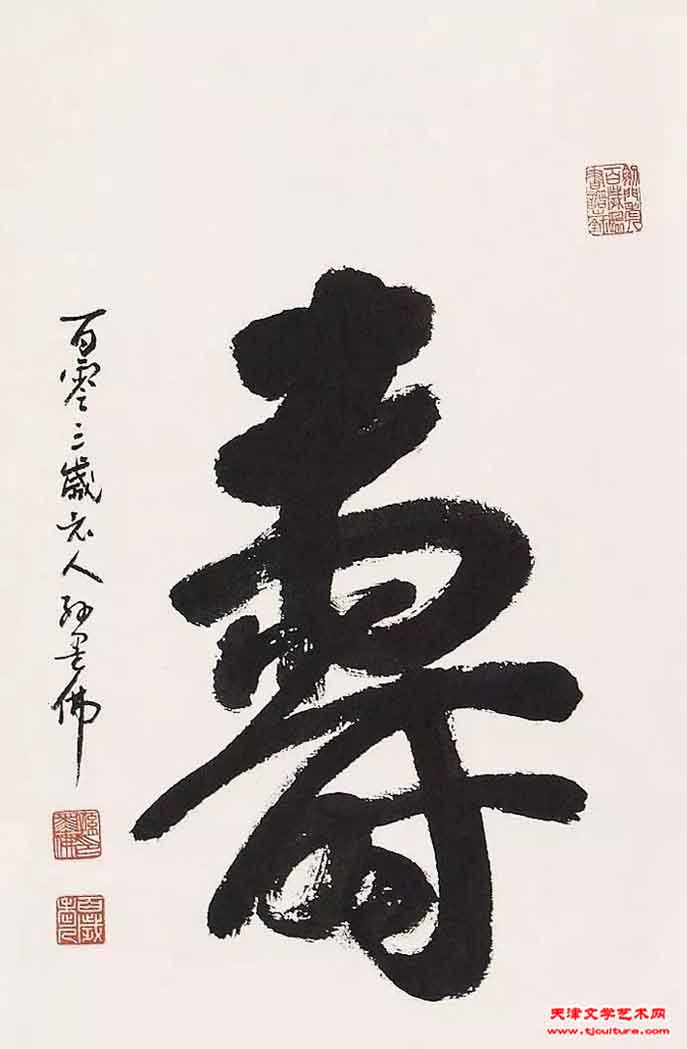 壽
百零三歲老人孙墨佛
天津文学艺术网
www.tjculture.com